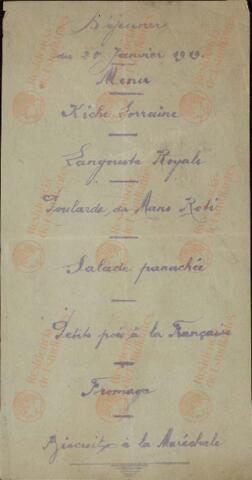 Déjeuner
du 20 Janvier 1919.
Menu
Kiche Lorraine
Langouste Royale
Poularde du Mans Roti
Salade panachée
Petits pois à la Française
Fromage
Biscuits à la Maréchale